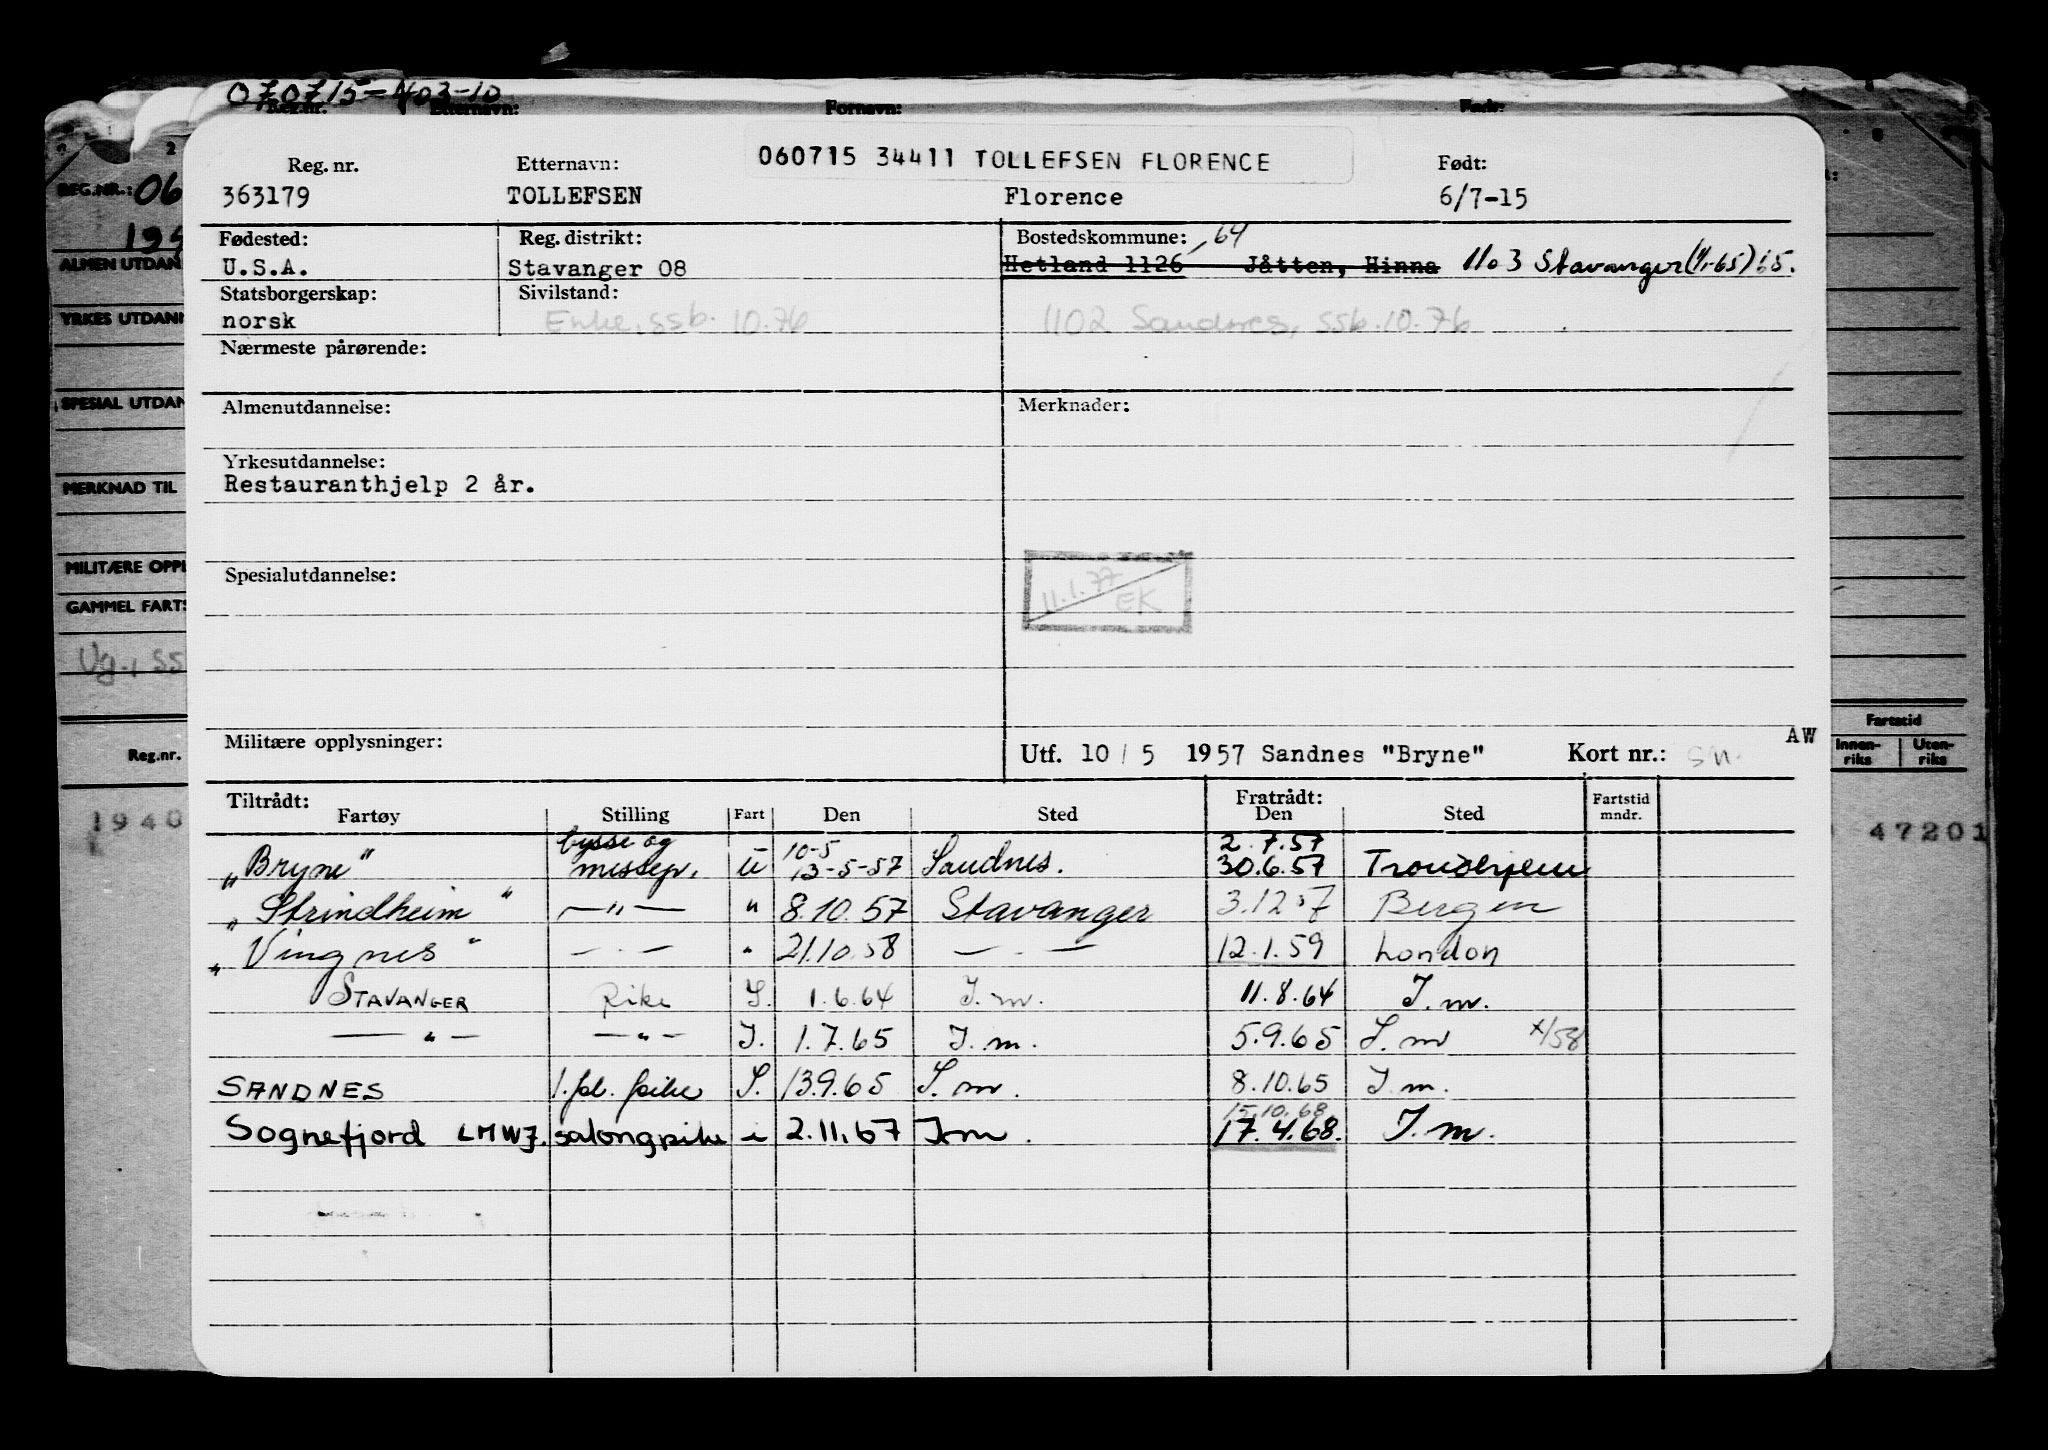 070715-403-10
Reg.nr. Etternavn: Fornavn: Født:
060715 34411 TOLLEFSEN FLORENCE
Reg. nr. Etternavn: Født:
363179 TOLLEFSEN Florence 6/7-15
Fødested: Reg. distrikt: Bostedskommune: 64
U.S.A. Stavanger 08 Hetland 1126 Jåtten, Hinna 1103 Stavanger (1/1-65) 65.
Statsborgerskap: Sivilstand:
norsk Enke, ssb. 10.76 1102 Sandnes, ssb. 10.76
Nærmeste pårørende:
Almenutdannelse: Merknader:
Yrkesutdannelse:
Restauranthjelp 2 år.
11.1.77
EK
Spesialutdannelse:
AW
Militære opplysninger: Utf. 10 / 5 1957 Sandnes "Bryne" Kort nr.: sn.
Tiltrådt: Fratrådt: Fartstid
Fartøy Stilling Fart Den Sted Den Sted mndr.
bysse og 10-5 2.7.57
„Bryne" messep. U 13-5-57 Sandnes. 30.6.57 Trondhjem
„Strindheim" —"— " 8.10.57 Stavanger 3.12 57 Bergen
„Vingnes" — - — " 21.10.58 — - — 12.1.59 London
STAVANGER Pike I. 1.6.64 I.m. 11.8.64 I.m.
— " — — " — I. 1.7.65 I.m. 5.9.65 I.m x/58
SANDNES 1.pl. pike I. 13.9.65 I.m. 8.10.65 I.m.
15.10.68
Sognefjord LMWJ. salongpike i 2.11.67 I.m. 17.4.68. I.m.
REG.NR.: 06
195
ALMEN UTDAN
YRKES UTDANN
SPESIAL UTDAN
MERKNAD TIL
MILITÆRE OPPL
GAMMEL FARTS
Ug., ss
Reg.nr.
1940
Fartstid
Innen-riks Uten-riks
47201